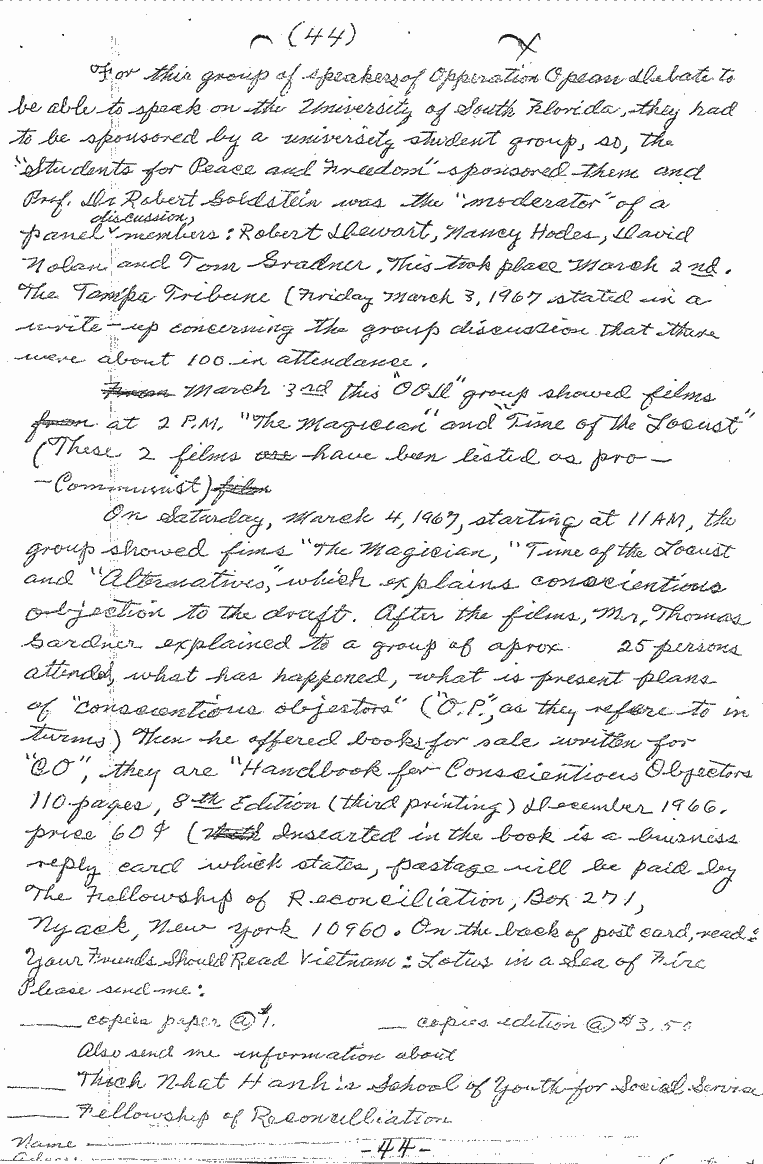 (44)
For this group of speakers of Opperation Opean Debate to
be able to speak on the University of South Florida, they had
to be sponsored by a university student group, so, the
"Students for Peace and Freedom" sponsored them and
Prof. Dr Robert Goldstein was the "moderator" of a
discussion,
panel members: Robert Dewart, Nancy Hodes, David
Nolan and Tom Gradner. This took place March 2nd.
The Tampa Tribune (Friday March 3, 1967 stated in a
write-up concerning the group discussion that there
were about 100 in attendance.
March 3rd this "OOD" group showed films
from at 2 P.M. "The Magician" and "Time of the Locust"
(These 2 films are have been listed as pro-
-Communist) film
On Saturday, March 4, 1967, starting at 11 AM, the
group showed fims "The Magician, "Time of the Locust
and "Alternatives," which explains conscientious
objection to the draft. After the films, Mr, Thomas
Gardner explained to a group of aprox 25 persons
attended, what has happened, what is present plans
of "conscientious objestors" ("O.P.", as they refere to in
turms) Then he offered books for sale written for
"CO", they are "Handbook for Conscientious Objectors
110 pages, 8th Edition (third printing) December 1966.
price 60¢ ( Insearted in the book is a buisness
reply card which states, pastage will be paid by
The Fellowship of Reconciliation, Box 271,
Nyack, New York 10960. On the back of post card, read:
Your Friends Should Read Vietnam: Lotus in a Sea of Fire
Please send me:
____ copies paper @ $1. __ copies edition @ $3.50
Also send me information about
____ Thich Nhat Hanh's School of Youth for Social Service
____ Fellowship of Reconcilliation
Name
-44-